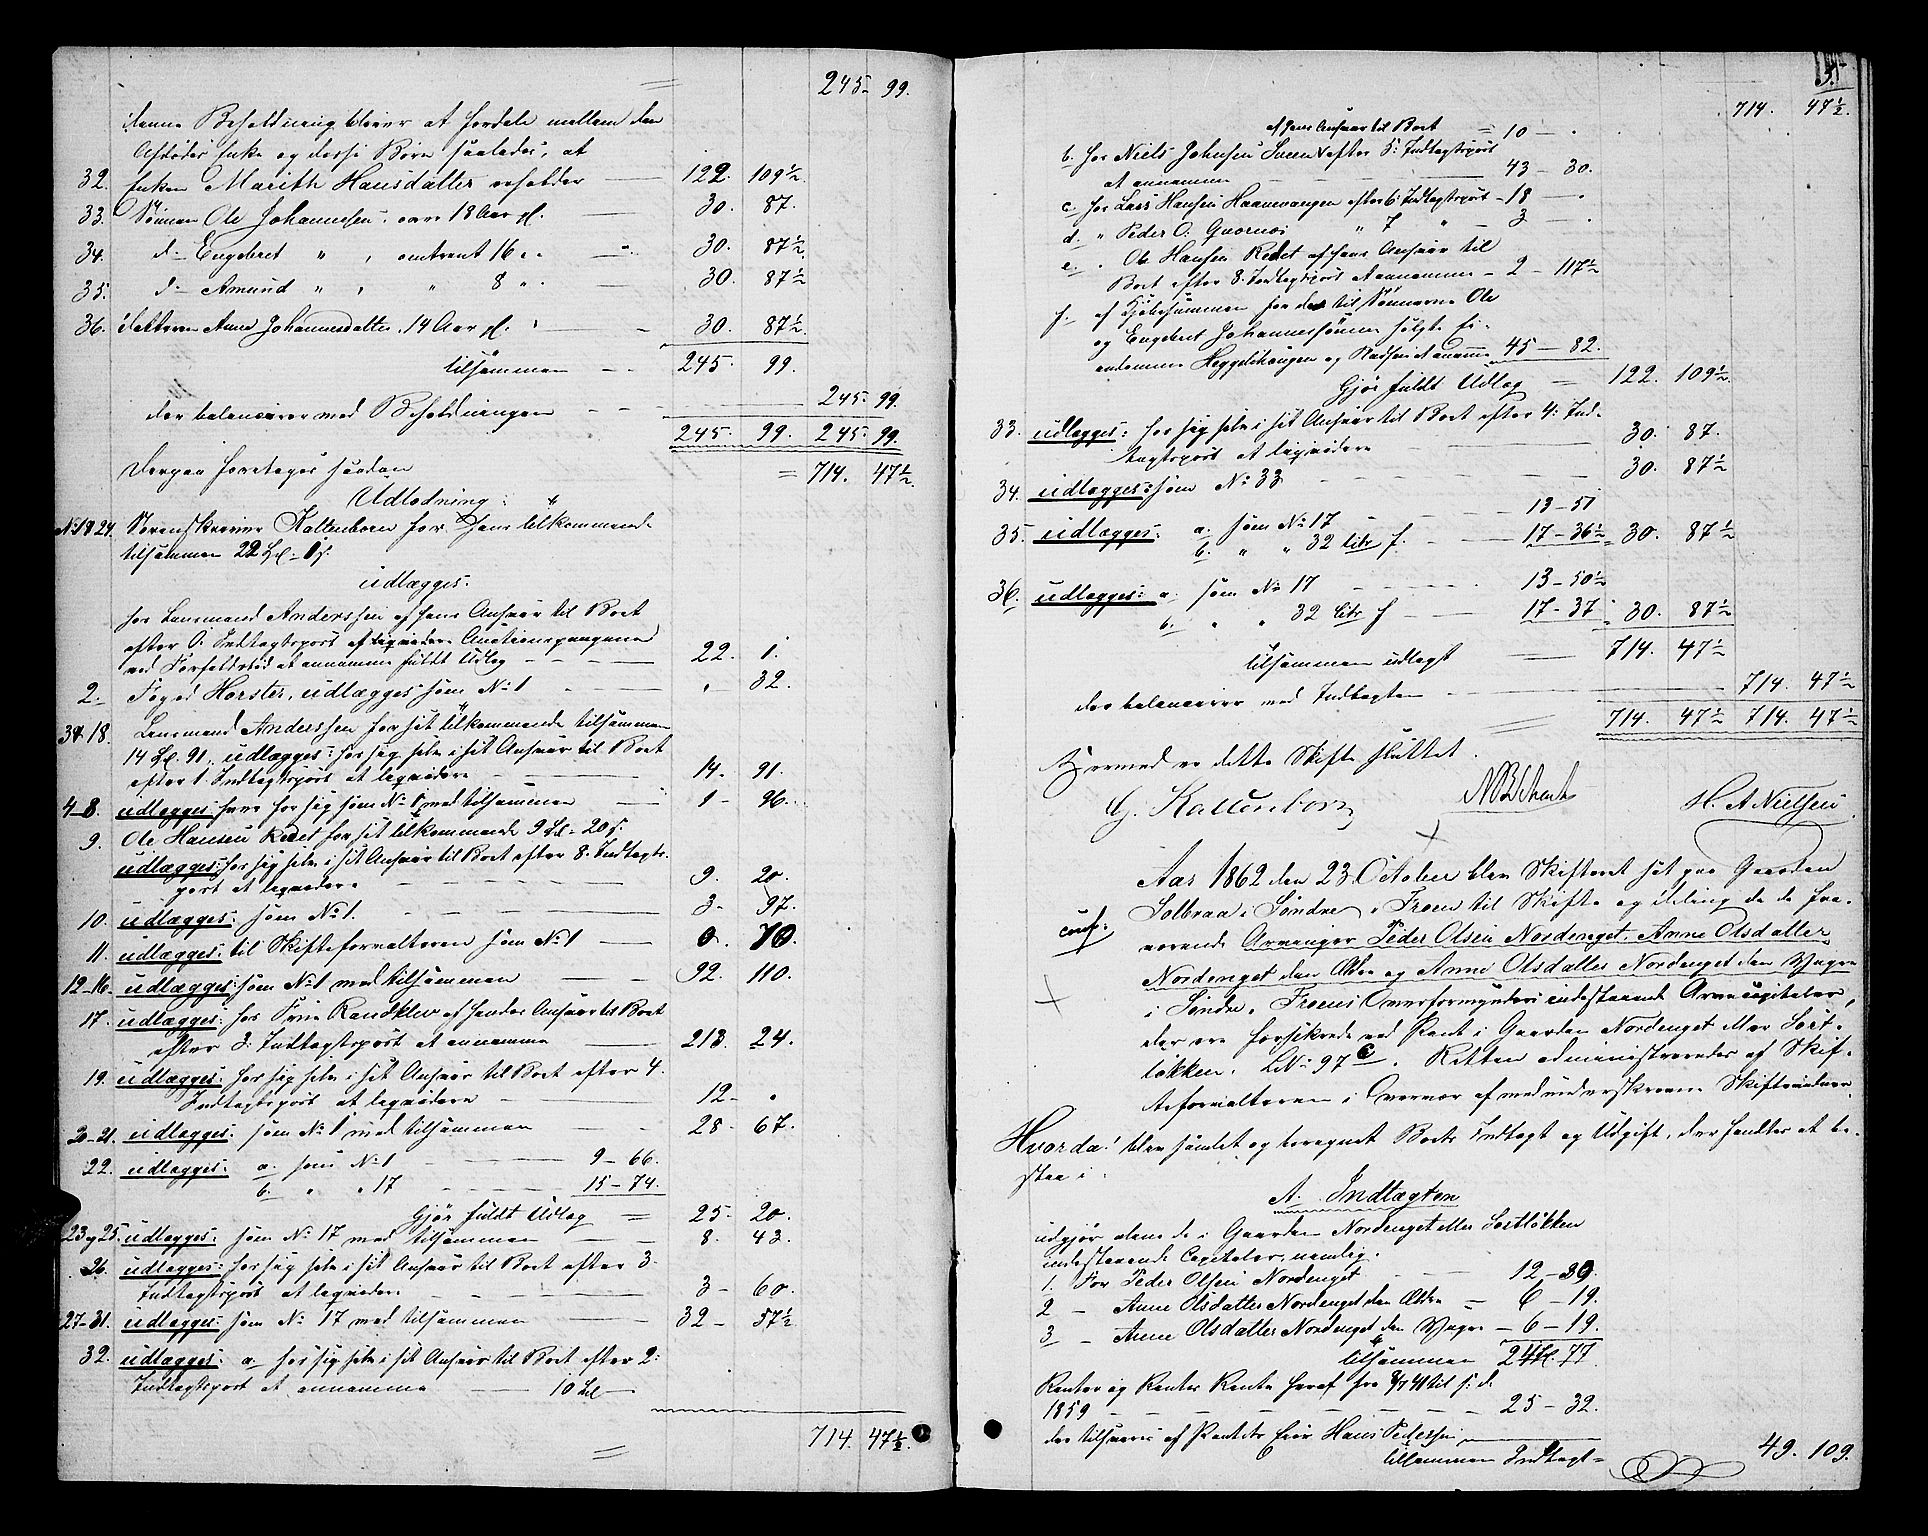 245 - 99.
denne Beholdning bliver at fordele mellem den
Afdødes Enke og desses Børn saaledes, at
32. Enken Marith Hansdatter erholder — 122. 109½
33. Sønnen Ole Johannesen, over 18 Aar gl. — 30. 87.
34. d— Engebret " , omtrent 16 " . — 30. 87½
35. d— Amund " , " 8 " . — 30. 87½
36. datteren Anne Johannesdatter, 14 Aar gl. — 30. 87½
tilsammen — 245. 99.
der balancerer med Beholdningen — 245. 99.
245. 99. 245. 99.
Derpaa foretoges saadan = 714. 47½
Udlodning:
No 1 & 24. Sorenskriver Kaltenborn for Hans tilkommende
tilsammen 22 Spd. - 1 s.
udlægges:
hos Lensmand Anderssen af hans Ansvar til Boet
efter 0. Indtægtspost at liqvidere Auctionspengene
ved Forfaldstid at annamme fuldt Udlæg — 22. 1.
2. Foged Horster, udlægges som No 1 — " 32.
3 & 18. Lensmand Anderssen for sit tilkommende tilsammen
14 Spd. 91, udlægges: hos sig selv i sit Ansvar til Boet
efter 1. Indtægtspost at liqvidere — 14. 91.
4-8. udlægges hver for sig som No 1 med tilsammen — 1 - 96.
9. Ole Hansen Redet for sit tilkommende 9 Spd. - 20 s.
udlægges: hos sig selv i sit Ansvar til Boet efter 8. Indtægts-
post at liqvidere — 9. 20.
10. udlægges: som No 1. — 3 - 97.
11. udlægges: til Skifteforvalteren som No 1 — 0. 70.
12-16. udlægges: som No 1 med tilsammen — 92. 110.
17. udlægges: hos Trine Randklev af hendes Ansvar til Boet
efter 3. Indtægtspost at annamme — 213. 24.
19. udlægges: hos sig selv i sit Ansvar til Boet efter 4.
Indtægtspost at liqvidere — 12 - "
20-21. udlægges: som No 1 med tilsammen — 28. 67.
22. udlægges: a. som No 1 — 9 - 66.
b. " " 17 — 15 - 74.
Gjør fuldt Udlæg = 25. 20.
23 og 25. udlægges: som No 17 med tilsammen — 8. 43.
26. udlægges: hos sig selv i sit Ansvar til Boet efter 3.
Indtægtspost at liqvidere — 3 - 60.
27-31. udlægges: som No 17 med tilsammen — 32 - 57½
32. udlægges: a. hos sig selv i sit Ansvar til Boet efter 2:
Indtægtspost at annamme — 10 Spd —
714. 47½
5.
714. 47½
af hans Ansvar til Boet = 10 - "
b. hos Niels Johnsen Sveen efter 5: Indtægtspost
at annamme — 43 - 30.
c. hos Lars Hansen Haanevangen efter 6: Indtægtspost - 18 - "
d. " Peder O. Qvarnes " 7 " - 3 - "
e. " Ole Hansen Redet af hans Ansvar til
Boet efter 8. Indtægtspost at annamme - 2 - 117½
f. af Kjøbesummen for den til Sønnerne Ole
og Engebret Johannessønner solgte Ei-
endomme Heggelihaugen og at annamme 45 - 82.
Gjør fuldt Udlæg = 122. 109½
33. udlægges: hos sig selv i sit Ansvar til Boet efter 4: Ind-
tægtspost at liqvidere — 30. 87.
34. udlægges: som No 33 — 30. 87½
35. udlægges: a. som No 17 — 13 - 51
b. " " 32 litr f. — 17 - 36½ = 30. 87½
36. udlægges: a. som No 17 — 13 - 50½
b. " " 32 litr f — 17 - 37 = 30. 87½
tilsammen udlagt — 714. 47½
der balancerer med Indtægten — 714. 47½
714. 47½ 714. 47½
Hermed er dette Skifte sluttet.
G. Kaltenborn H. A. Nielsen
Aar 1862 den 23 October blev Skifteret sat paa Gaarden
Solbraa i Søndre Froen til Skifte og deling de de fra-
conf.
værende Arvinger Peder Olsen Nordenget, Anne Olsdatter
Nordenget den Ældre og Anne Olsdatter Nordenget den Yngre
i Søndre Froens Overformynderi indestaaende Arvecapitaler,
der ere forsikrede ved Pant i Gaarden Nordenget eller Sort-
løkken, L No 97 c. Retten administreredes af Skif-
teforvalteren i Overvær af medunderskrevne Skiftevidner
Hvorda! blev samlet og beregnet Boets Indtægt og Udgift, der fandtes at be-
staa i:
A. Indtægten
udgjør alene de i Gaarden Nordenget eller Sortløkken
indestaaende Capitaler, nemlig:
1. For Peder Olsen Nordenget — 12 - 39.
2 — Anne Olsdatter Nordenget den Ældre — 6 - 19.
3 — Anne Olsdatter Nordenget den Yngre — 6 - 19.
tilsammen 24 Spd. 77
Renter og Renters Rente heraf fra 8/7 41 til s. d.
1859 — 25 - 32.
der tilsvares af Pantets Eier Hans Pedersen
tilsammen Indtægt = 49. 109.